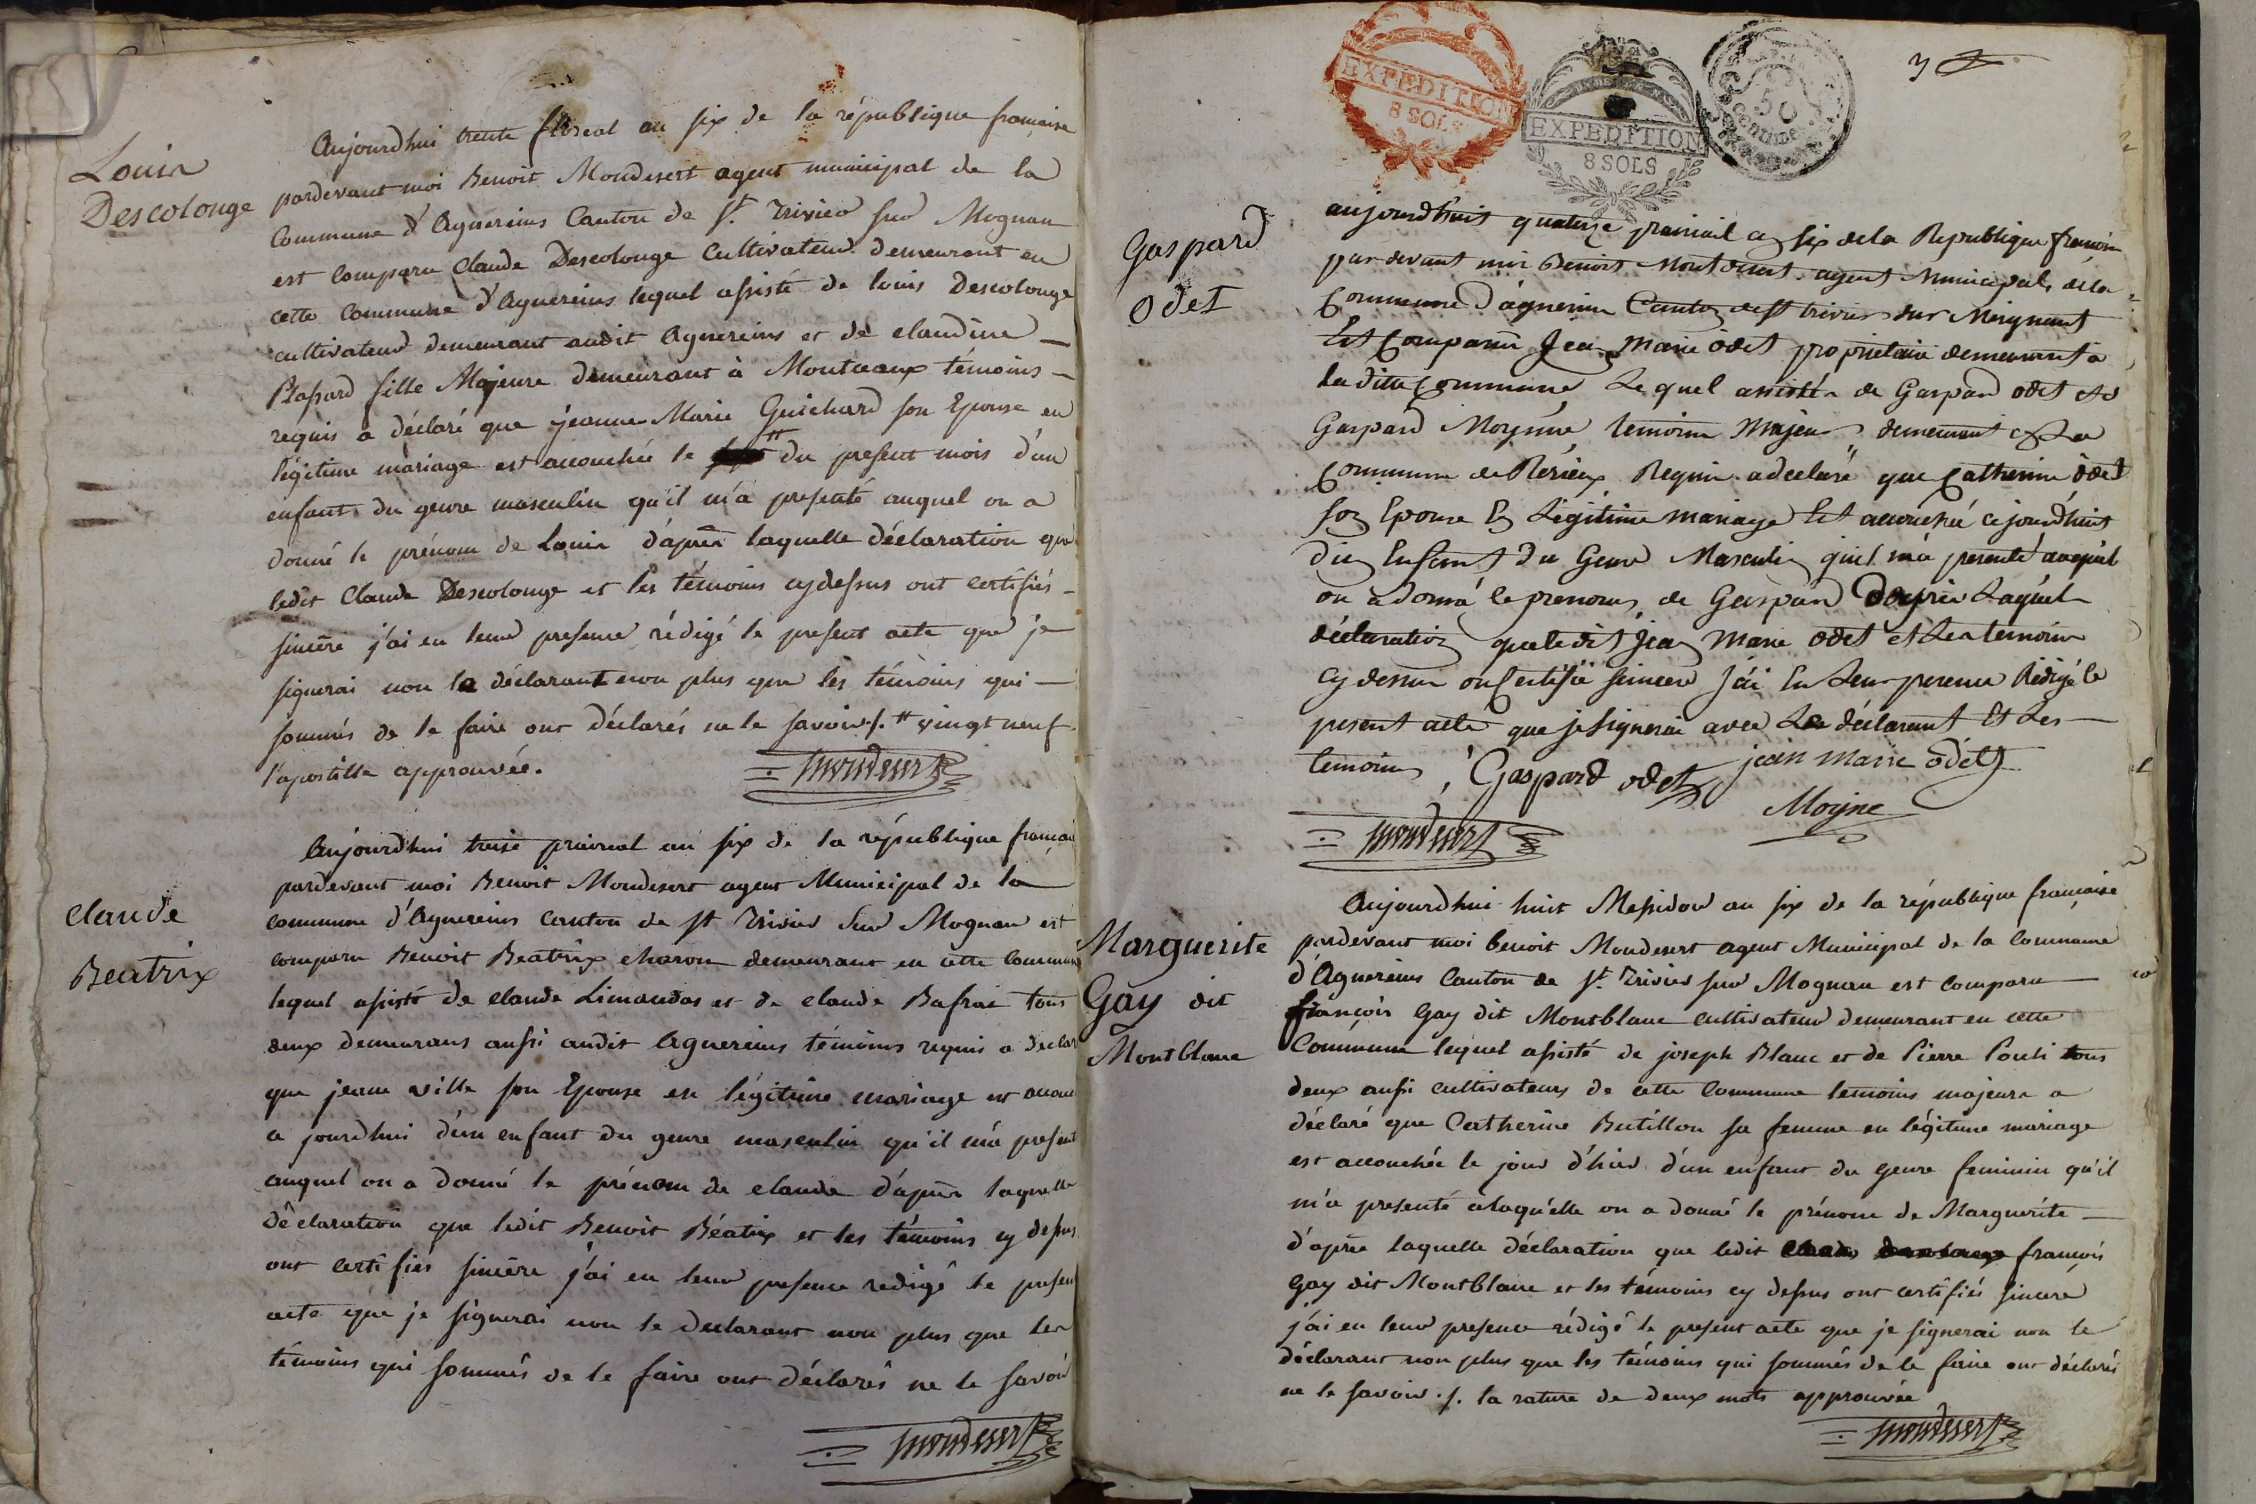 Louis
Descolonge
Aujourdhui trente floreal an six de la république française
pardevant moi Benoit Mondesert agent municipal de la
Commune d'Aguereins Canton de St. Trivier sur Mognan
est comparu Claude Descolonge Cultivateur demeurant en
cette Commune d'Aguereins lequel assisté de louis Descolonge
cultivateur demeurant audit Aguereins et de claudine
Plassard fille Majeure demeurant à Montceaux témoins
requis a déclaré que jeanne Marie Guichard son Epouse en
légitime mariage est accouchée le du present mois d'un
enfant du genre masculin qu'il m'a presenté auquel on a
donné le prénom de Louis d'après laquelle déclaration que
ledit Claude Descolonge et les témoins cydessus ont certifiés
sincère j'ai en leur presence rédigé le present acte que je
signerai non le déclarant non plus que les témoins qui
sommés de le faire ont déclarés ne le savoir ./. # vingt neuf
l'apostille approuvée.
Mondesert
Claude
Beatrix
Aujourdhui treize prairial an six de la république française
pardevant moi Benoit Mondesert agent Municipal de la
commune d'Aguereins canton de St Trivier sur Mognan est
comparu Benoit Beatrix charon demeurant en cette commune
lequel assisté de claude Limandas et de claude Bafrai tous
deux demeurans aussi audit Aguereins témoins requis a déclar
que jeanne ville son Epouse en légitime mariage est accou
a jourdhui d'un enfant du genre masculin qu'il m'a present
auquel on a donné le prénom de claude d'après laquelle
déclaration que ledit Benoit Béatrix et les témoins cy dessus
ont certifiés sincère j'ai en leur presence redigé le present
acte que je signerai non le declarant non plus que les
témoins qui sommés de le faire ont déclarés ne le savoir
Mondesert
EXPEDITION
8 SOLS
EXPEDITION
8 SOLS
50
centimes
3
Gaspard
Odet
aujourdhuit quatorze prairial an six dela Republique francoise
par devant moi Benoit Montdesert agent Municipal dela
Commune d'aguerin Canton de st trivier sur Moignant
Est Comparu Jean Marie odet propriétaire demeurant a
la ditte Commune Lequel assisté de Gaspard odet et de
Gaspard Moysne temoins Majeurs demeurant en la
Commune de Rérieux Requis a declaré que Catherine odet
son Epouse En Légitime mariage Est accouchée ce jourdhuit
d'un Enfant du Genre Masculin quil m'a presenté auquel
on a donné le prenoms de Gaspard d'aprés Laquel
déclaration que le dit Jean Marie odet et Les temoins
cy dessus on Certifié sincere J'ai En Leur perence Rédigé le
present acte que je Signerai avec Le déclarant Et Les
temoins
Gaspard odet
jean marie odet
Moyne
Mondesert
Marguerite
Gay dit
Montblanc
Aujourdhui huit Messidor an six de la république française
pardevant moi benoit Mondesert agent Municipal de la commune
d'Aguereins Canton de St. Trivier sur Mognan est comparu
françois Gay dit Montblanc cultivateur demeurant en cette
Commune lequel assisté de joseph Blanc et de Pierre Ponti tous
deux aussi cultivateurs de cette commune temoins majeurs a
déclaré que Catherine Butillon sa femme en légitime mariage
est accouchée le jour d'hier d'un enfant du genre feminin qu'il
m'a presenté alaquelle on a donné le prénom de Marguerite
d'après laquelle déclaration que ledit françois
Gay dit Montblanc et les témoins cy dessus ont certifié sincère
j'ai en leur presence rédigé le present acte que je signerai non le
déclarant non plus que les témoins qui sommés de le faire ont déclarés
ne le savoir ./. la rature de deux mots approuvée
Mondesert